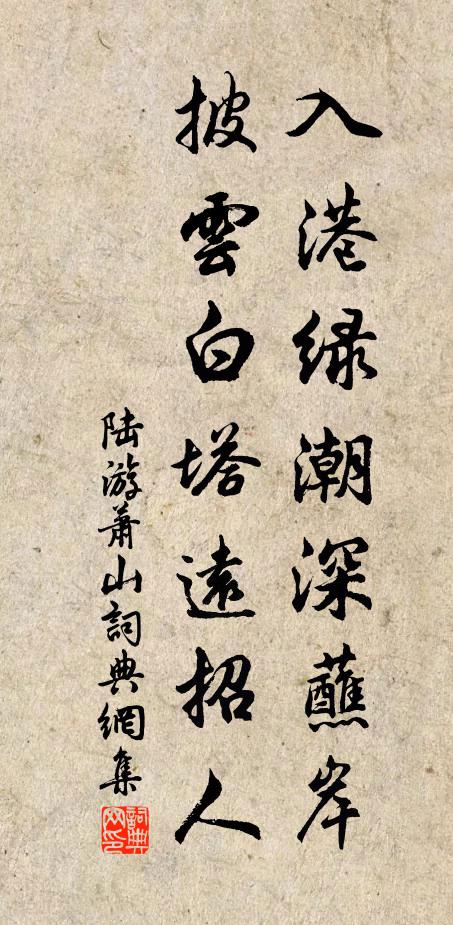 入港绿潮深蘸岸
披雲白塔遠招人
陆游萧山詞典網集
詞典网印